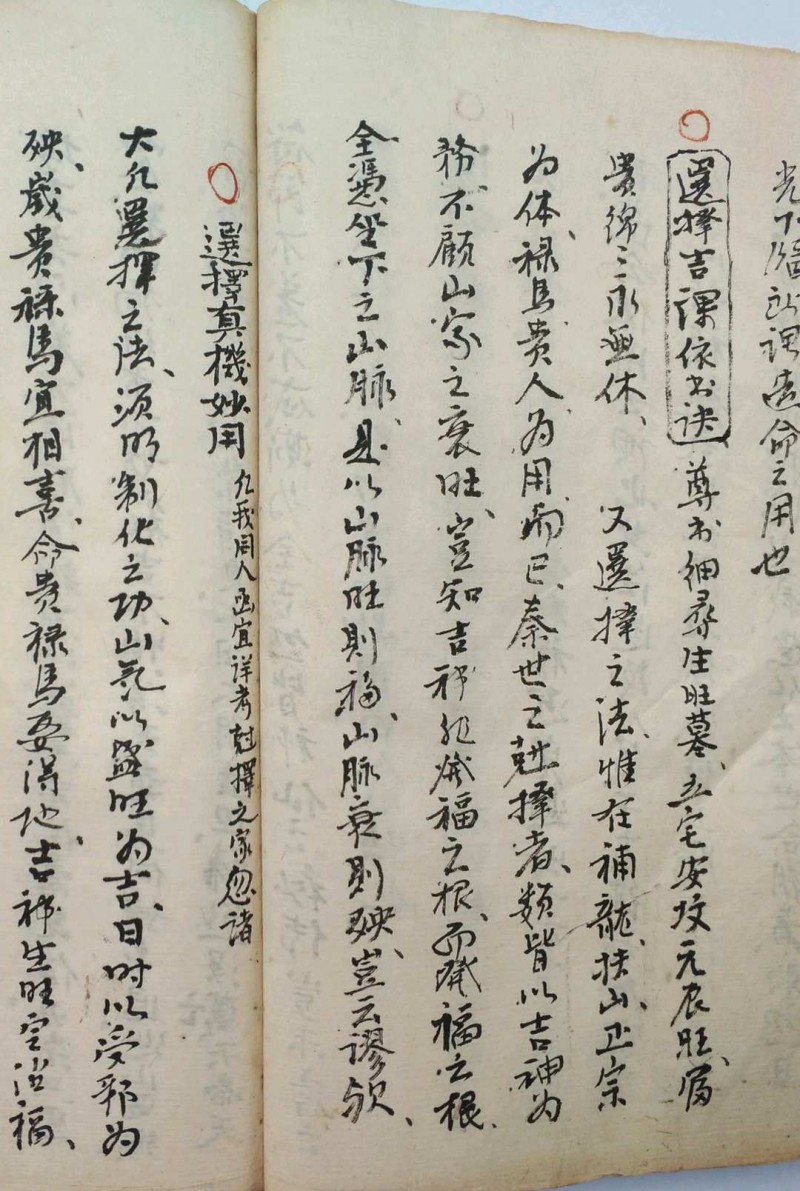 光下臨所謂造命之用也
選擇吉課依書訣 尊書細尋生旺墓、立宅安坟元辰旺、富
貴綿〻永無休、 又選擇之法、惟在補龍、扶山、正宗
为体、禄馬貴人、为用而已、秦世之尅擇者、類皆以吉神为
務、不顧山家之衰旺、豈知吉神非發福之根、而發福之根、
全憑坐下之山脉、是以山脉旺則福、山脉衰則殃、豈云謬欤、
選擇真機妙用 凡我同人函宜詳考尅擇之家忽諸
大凡選擇之法、須明制化之功、山家以盛旺为吉、日时以受邪为
殃、歲貴禄馬宜相喜、命貴禄馬要得地、吉神生旺定沾福、